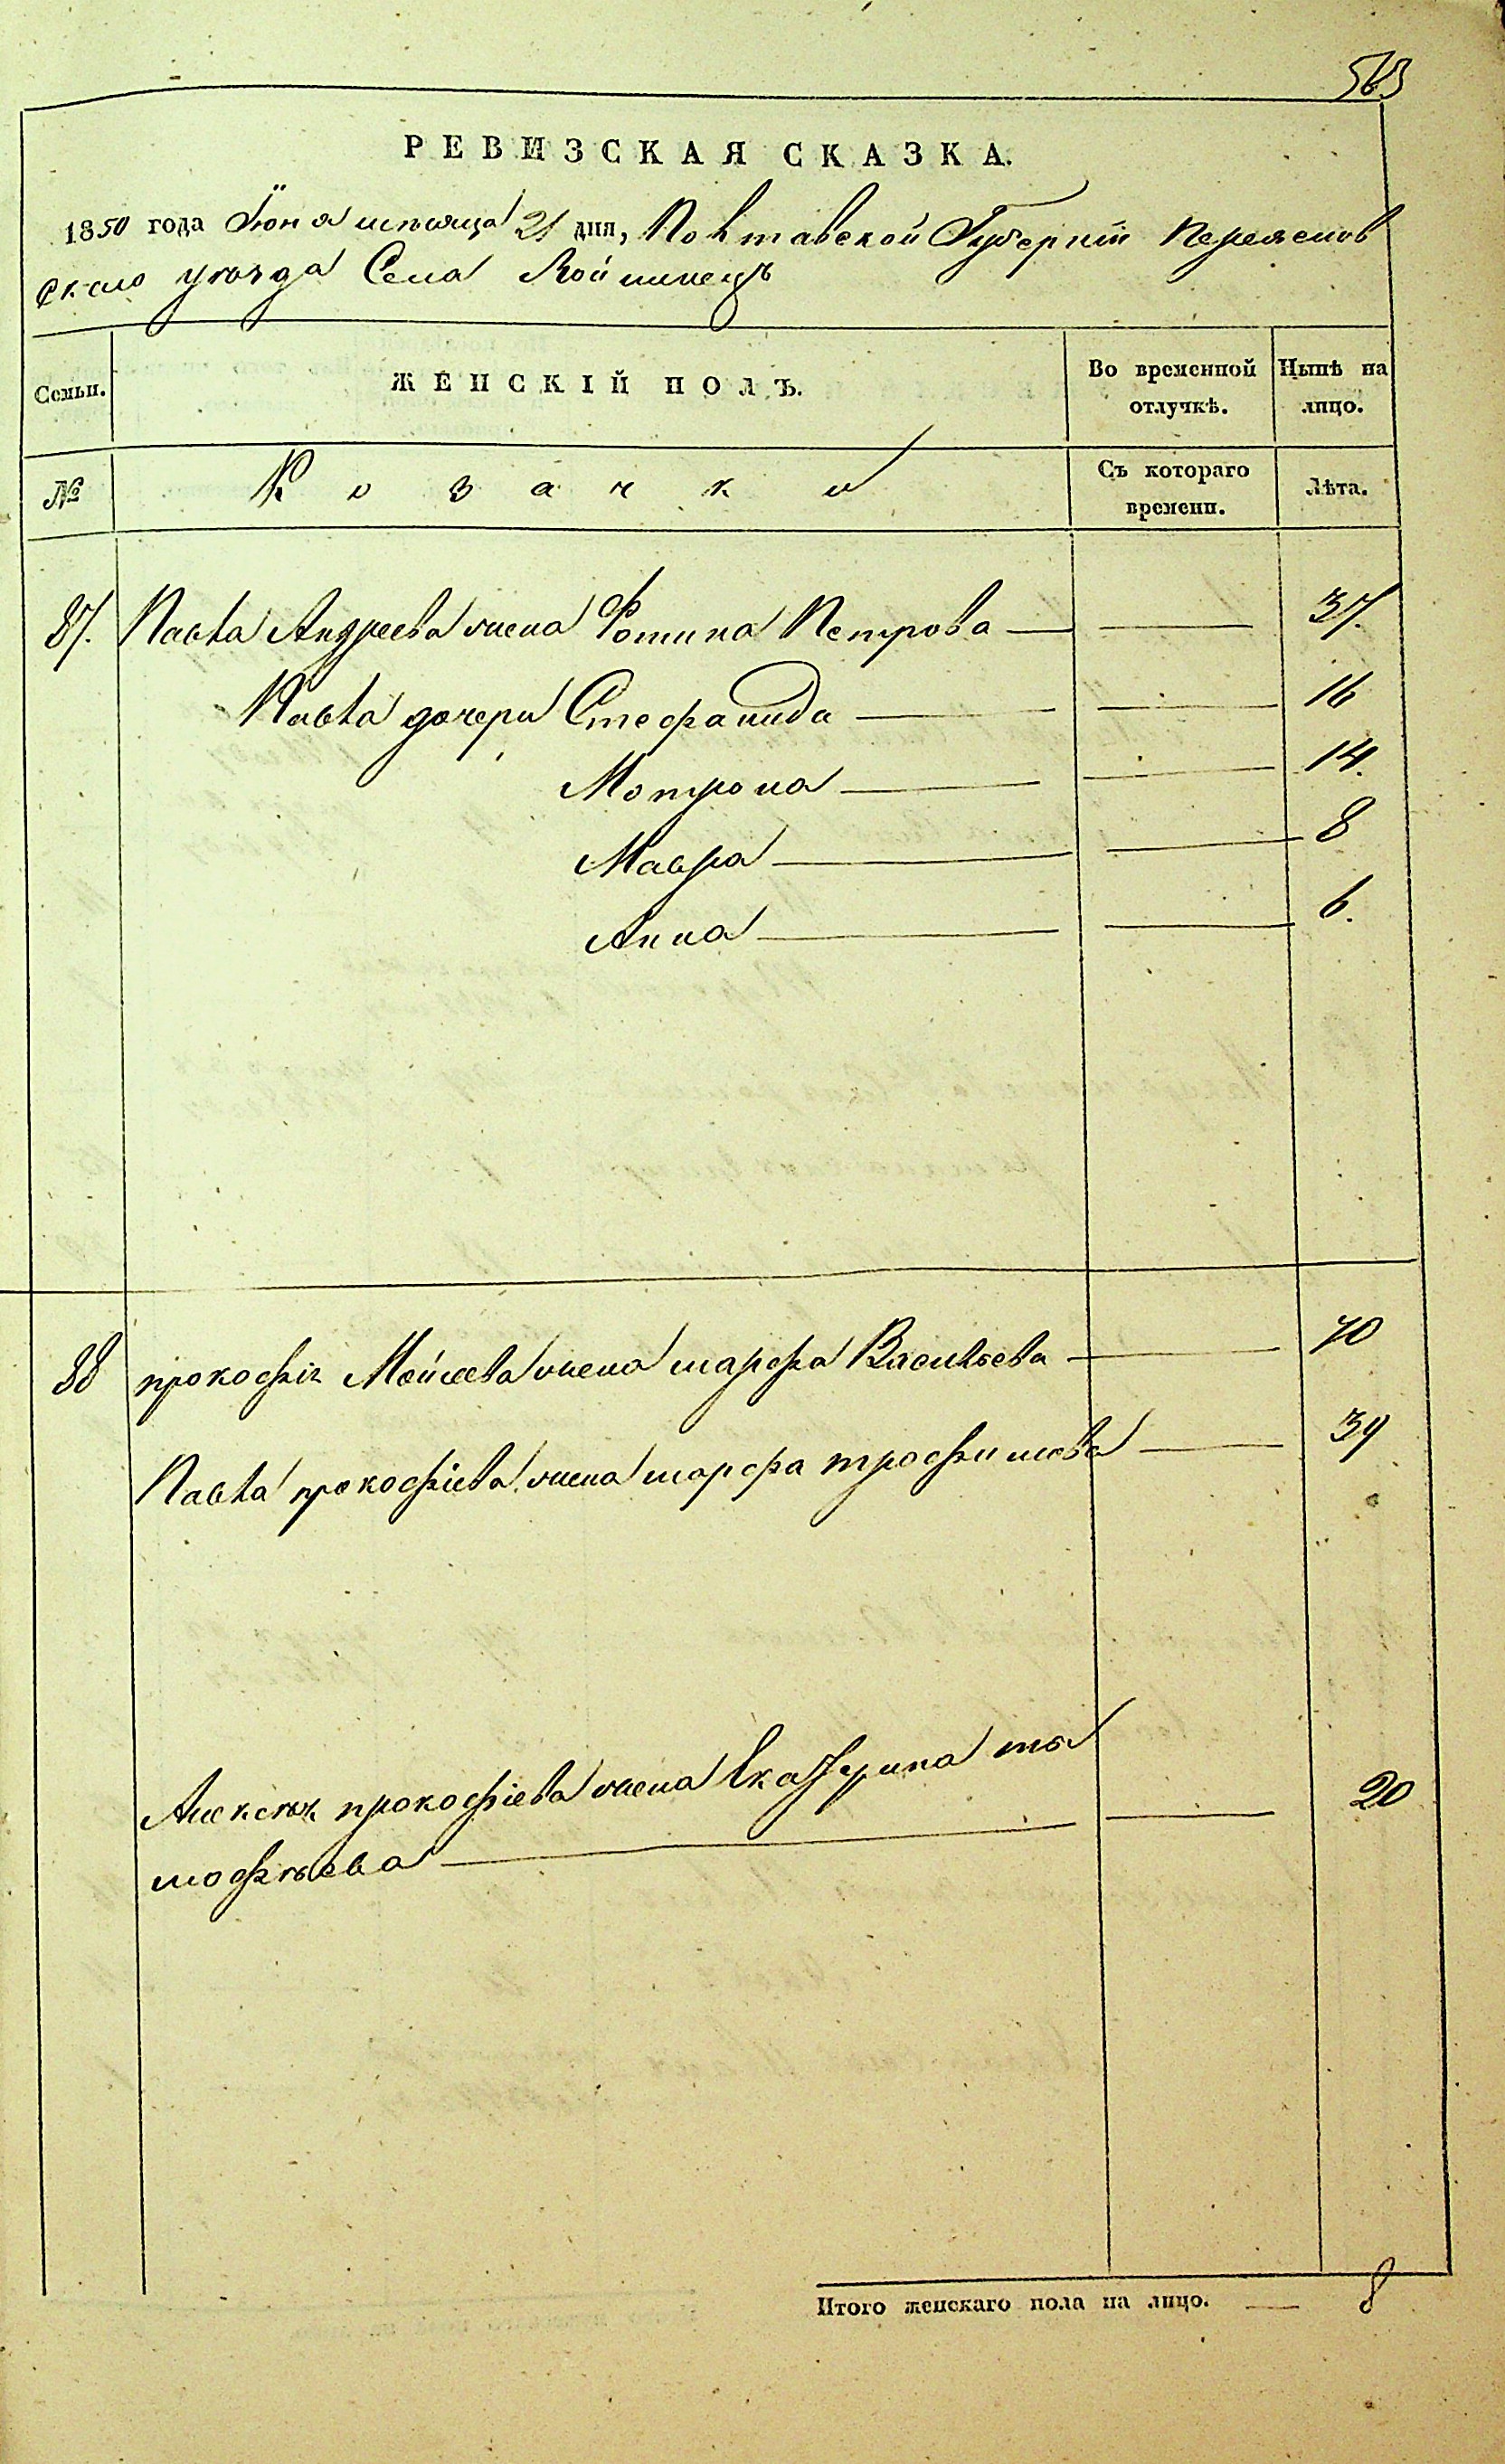 563
РЕВИЗСКАЯ СКАЗКА.
1850 года Іюня мѣсяца 21 дня, Полтавской Губерніи Переяслов
скаго уѣзда Села Войтинецъ
Семьи. ЖЕНСКІЙ ПОЛЪ. Во временной отлучкѣ. Нынѣ на лицо.
№ Козачки Съ котораго времени. Лѣта.
87. Павла Андреева жена Фотина Петрова 37.
Павла дочери Стефанида 16
Мотрона 14.
Мавра 8
Анна 6.
88 прокофія Мойсеева жена марфа Васильева 70
Павла прокофіева жена марфа трофимова 39
Алексѣя прокофіева жена Екатерина ти 20
мофѣева
Итого женскаго пола на лицо. 8